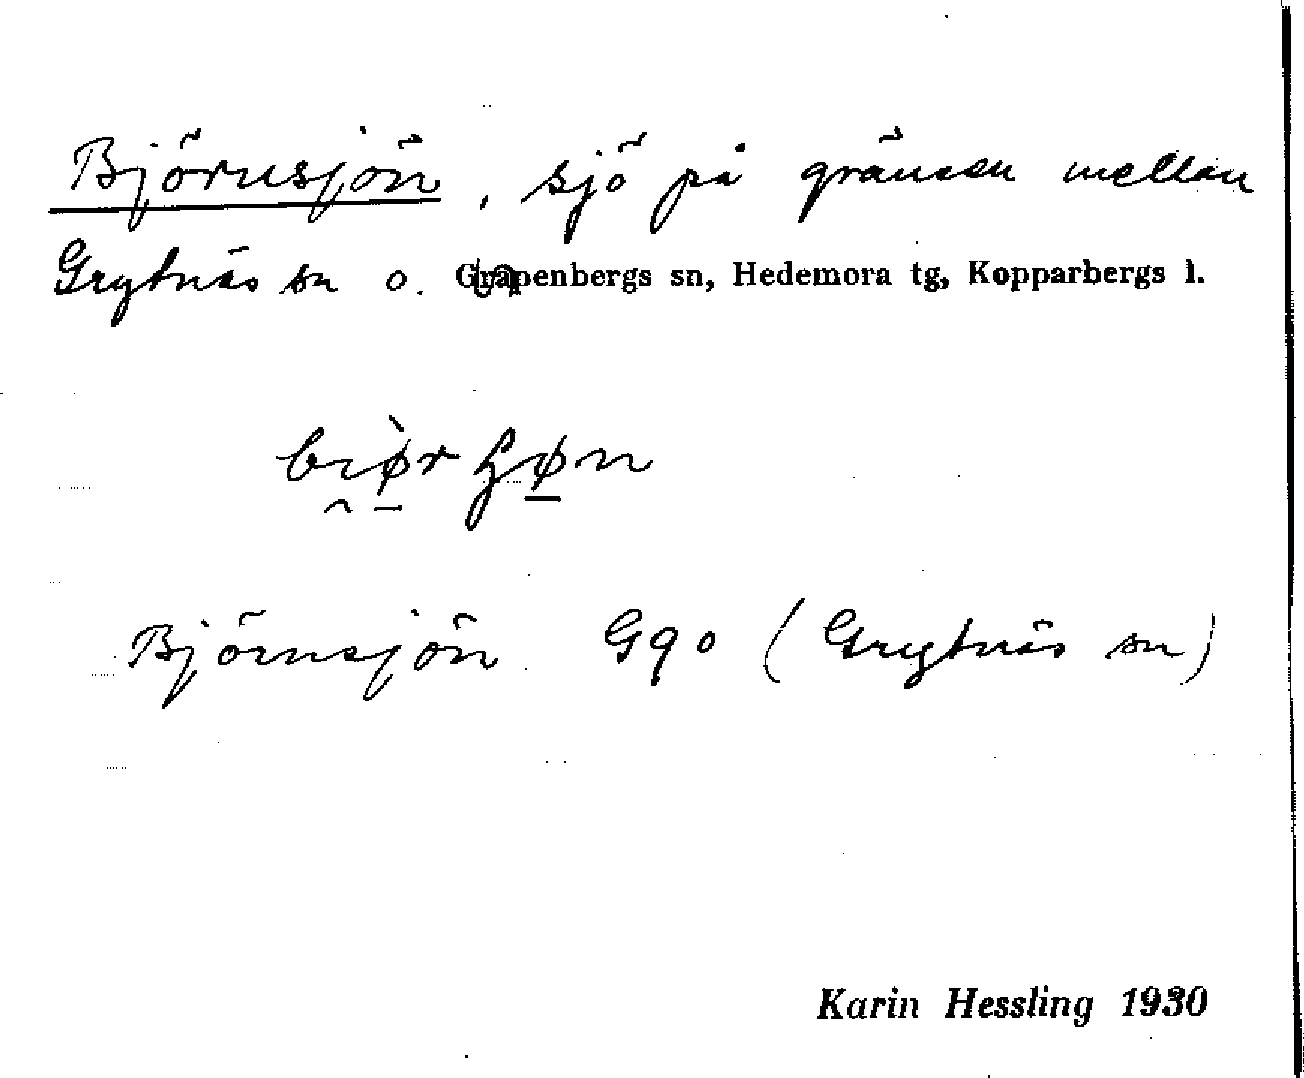 Björnsjön, sjö på gränsen mellan
Grytnäs sn o. Garpenbergs sn, Hedemora tg, Kopparbergs l.
Björnsjön Gqo (Grytnäs sn)
Karin Hessling 1930